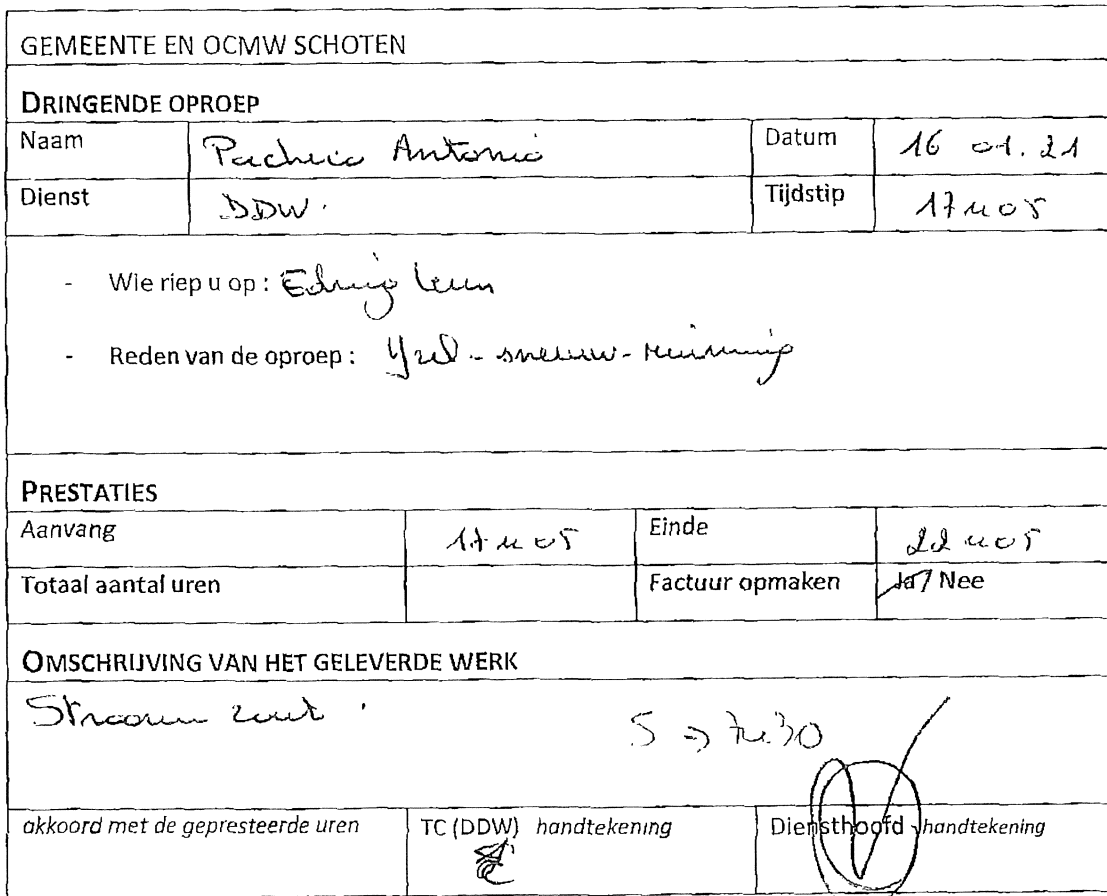 GEMEENTE EN OCMW SCHOTEN
DRINGENDE OPROEP
Naam Antonio Datum 16 01.21
Dienst DDW. Tijdstip 17u05
- Wie riep u op :
- Reden van de oproep : Yzel - sneeuw - ruiming
PRESTATIES
Aanvang 17u05 Einde 22u05
Totaal aantal uren Factuur opmaken Ja / Nee
OMSCHRIJVING VAN HET GELEVERDE WERK
Strooien zout.
5 => 7u30
akkoord met de gepresteerde uren TC (DDW) handtekening Diensthoofd handtekening